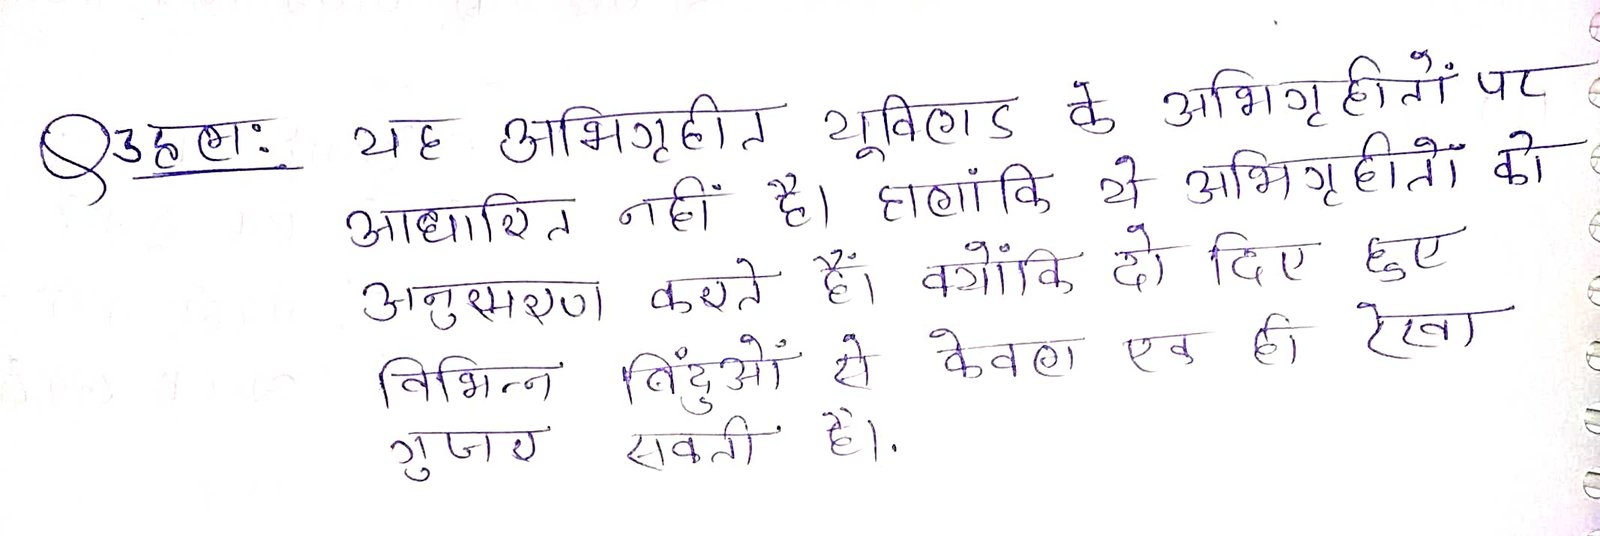 Q3 हल: यह अभिगृहीत यूक्लिड के अभिगृहीतों पर
आधारित नहीं है। हालांकि ये अभिगृहीतों को
अनुसरण करते हैं। क्योंकि दो दिए हुए
विभिन्न बिंदुओं से केवल एक ही रेखा
गुजर सकती है।.